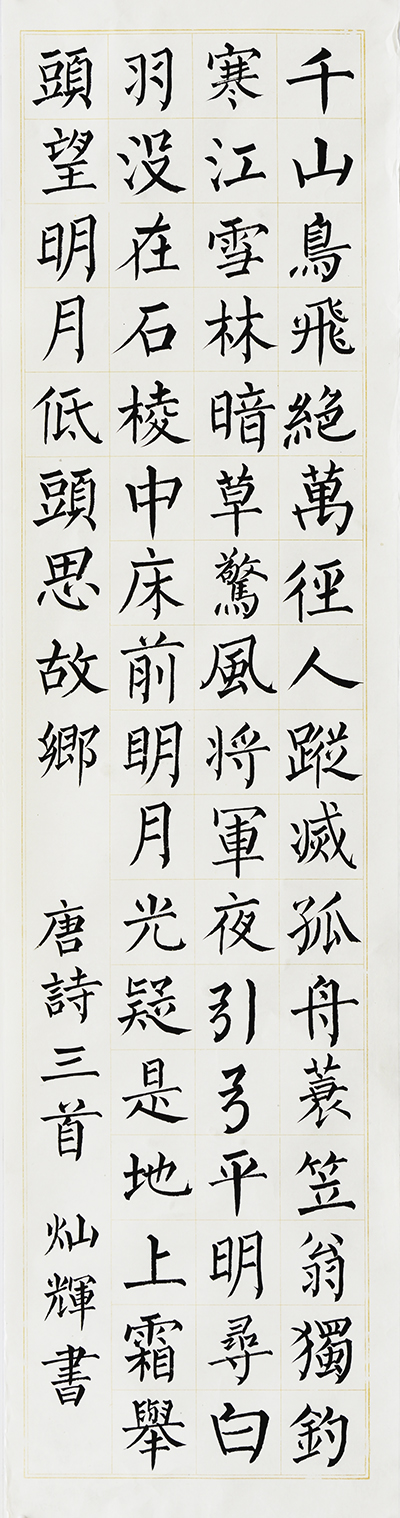 千山鳥飛絕萬徑人蹤滅孤舟蓑笠翁獨釣
寒江雪林暗草驚風將軍夜引弓平明尋白
羽没在石棱中床前明月光疑是地上霜舉
頭望明月低頭思故鄉
唐詩三首 灿輝書